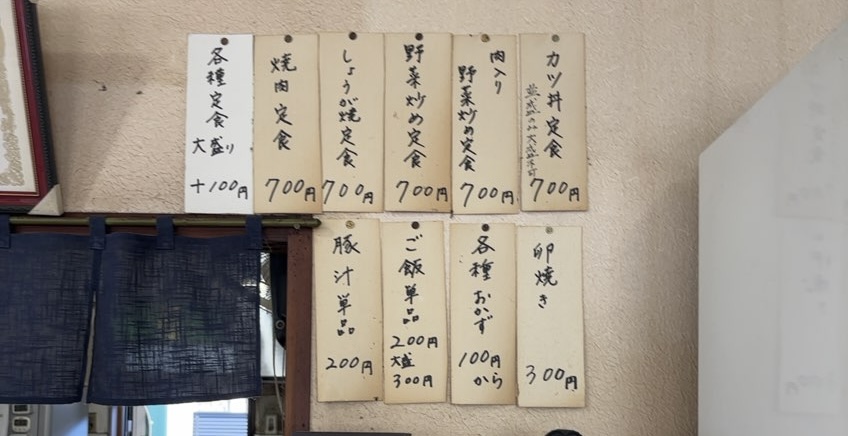 カツ丼定食
700円
肉入り
野菜炒め定食
700円
野菜炒め定食
700円
しょうが焼定食
700円
焼肉定食
700円
各種定食
大盛り
+100円
卵焼き
300円
各種おかず
100円
から
ご飯単品
200円
大盛
300円
豚汁単品
200円